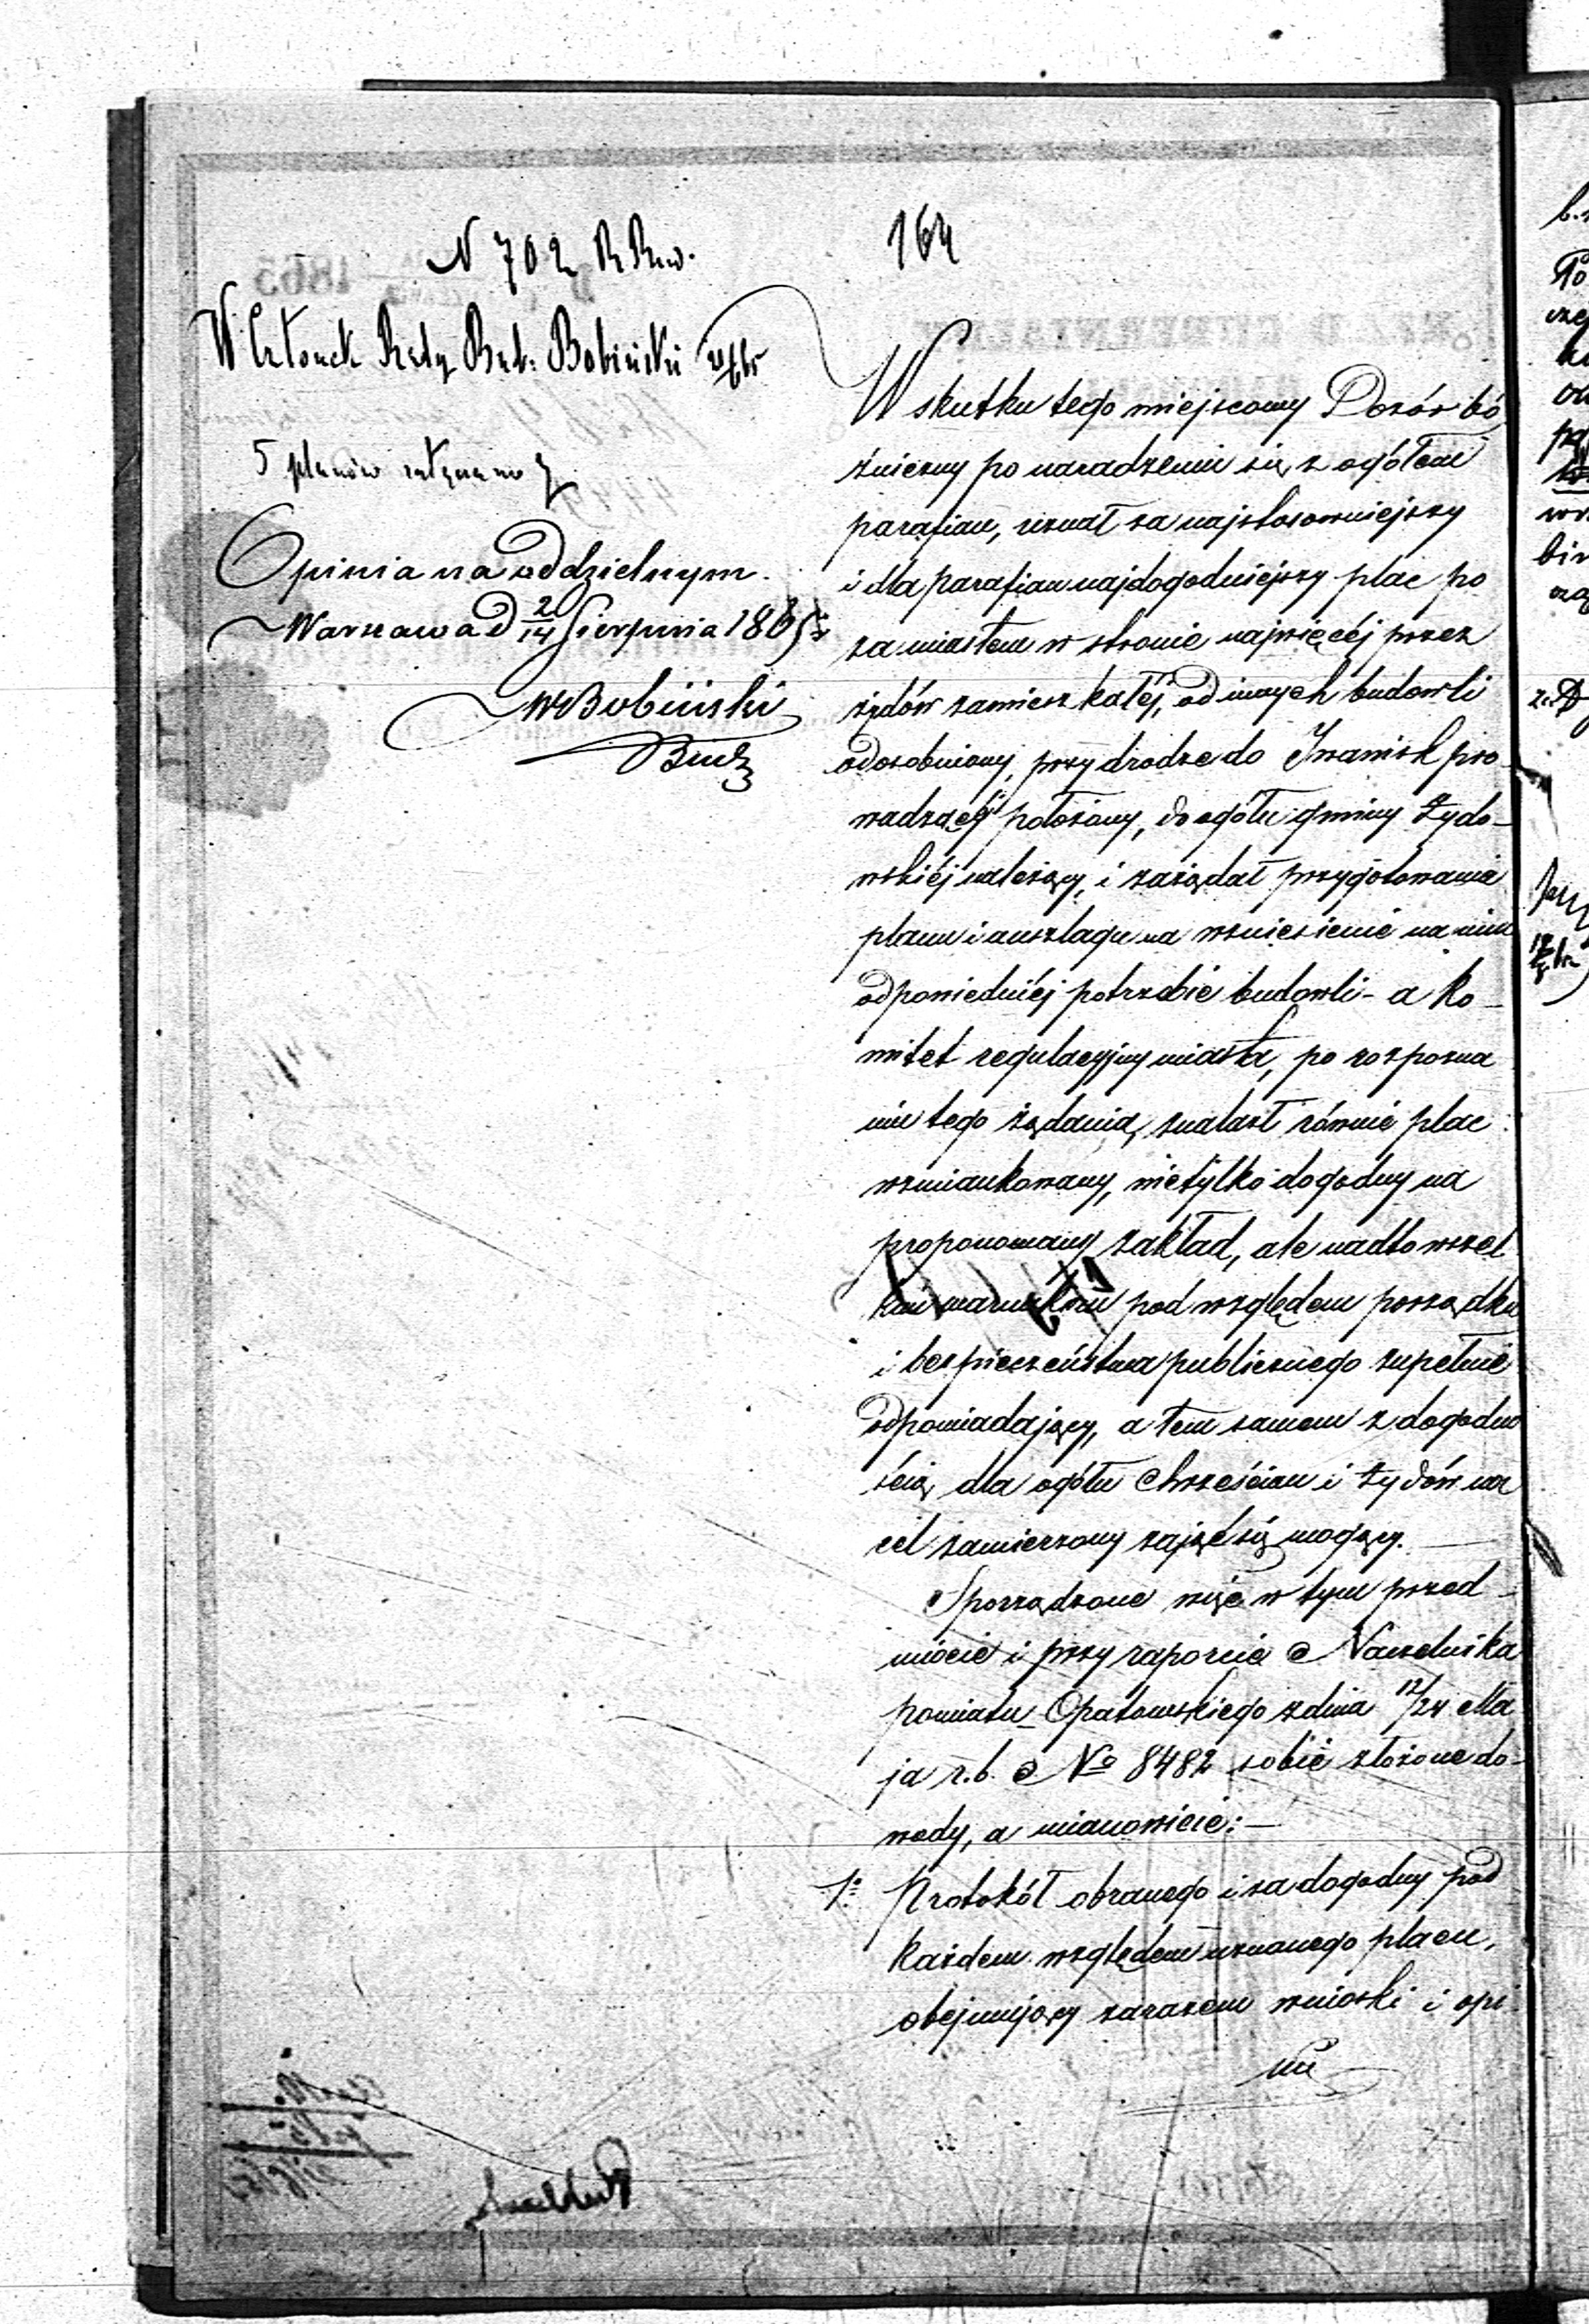 164
N 702 R Bud.
W Członek Rady Bud: Bobiński
5 planów
Opinia na oddzielnym.
Warszawa d 2/14 Sierpnia 1865 r
W Bobiński
Bud
W skutku tego miejscowy Dozór bó
żniczny po naradzeniu się z ogółem
parafian, uznał za najstosowniejszy
i dla parafian najdogodniejszy plac po
za miastem w stronie najwięcéj przez
żydów zamieszkałéj, od innych budowli
odosobniony, przy drodze do Iwanisk pro
wadzącéj położony, do ogółu gminy żydo-
wskiéj należący, i zażądał przygotowania
planu i anszlagu na wzniesienie na nim
odpowiedniéj potrzebie budowli - a Ko-
mitet regulacyjny miasta, po rozpozna
niu tego żądania, znalazł równie plac
wzmiankowany, nietylko dogodny na
proponowany zakład, ale nadto wszel
kim warunkom pod względem porządku
i bezpieczeństwa publicznego zupełnie
odpowiadający, a tem samem z dogodno
ścią dla ogółu Chrześcian i żydów na
cel zamierzony zająć się mogący. —
Sporządzone więc w tym przed-
miocie i przy raporcie Naczelnika
powiatu Opatowskiego z dnia 12/24 Ma
ja r. b. No 8482 sobie złożone do-
wody, a mianowicie: —
1o Protokół obranego i za dogodny pod
każdem względem uznanego placu,
obejmujący zarazem wnioski i opi
nie